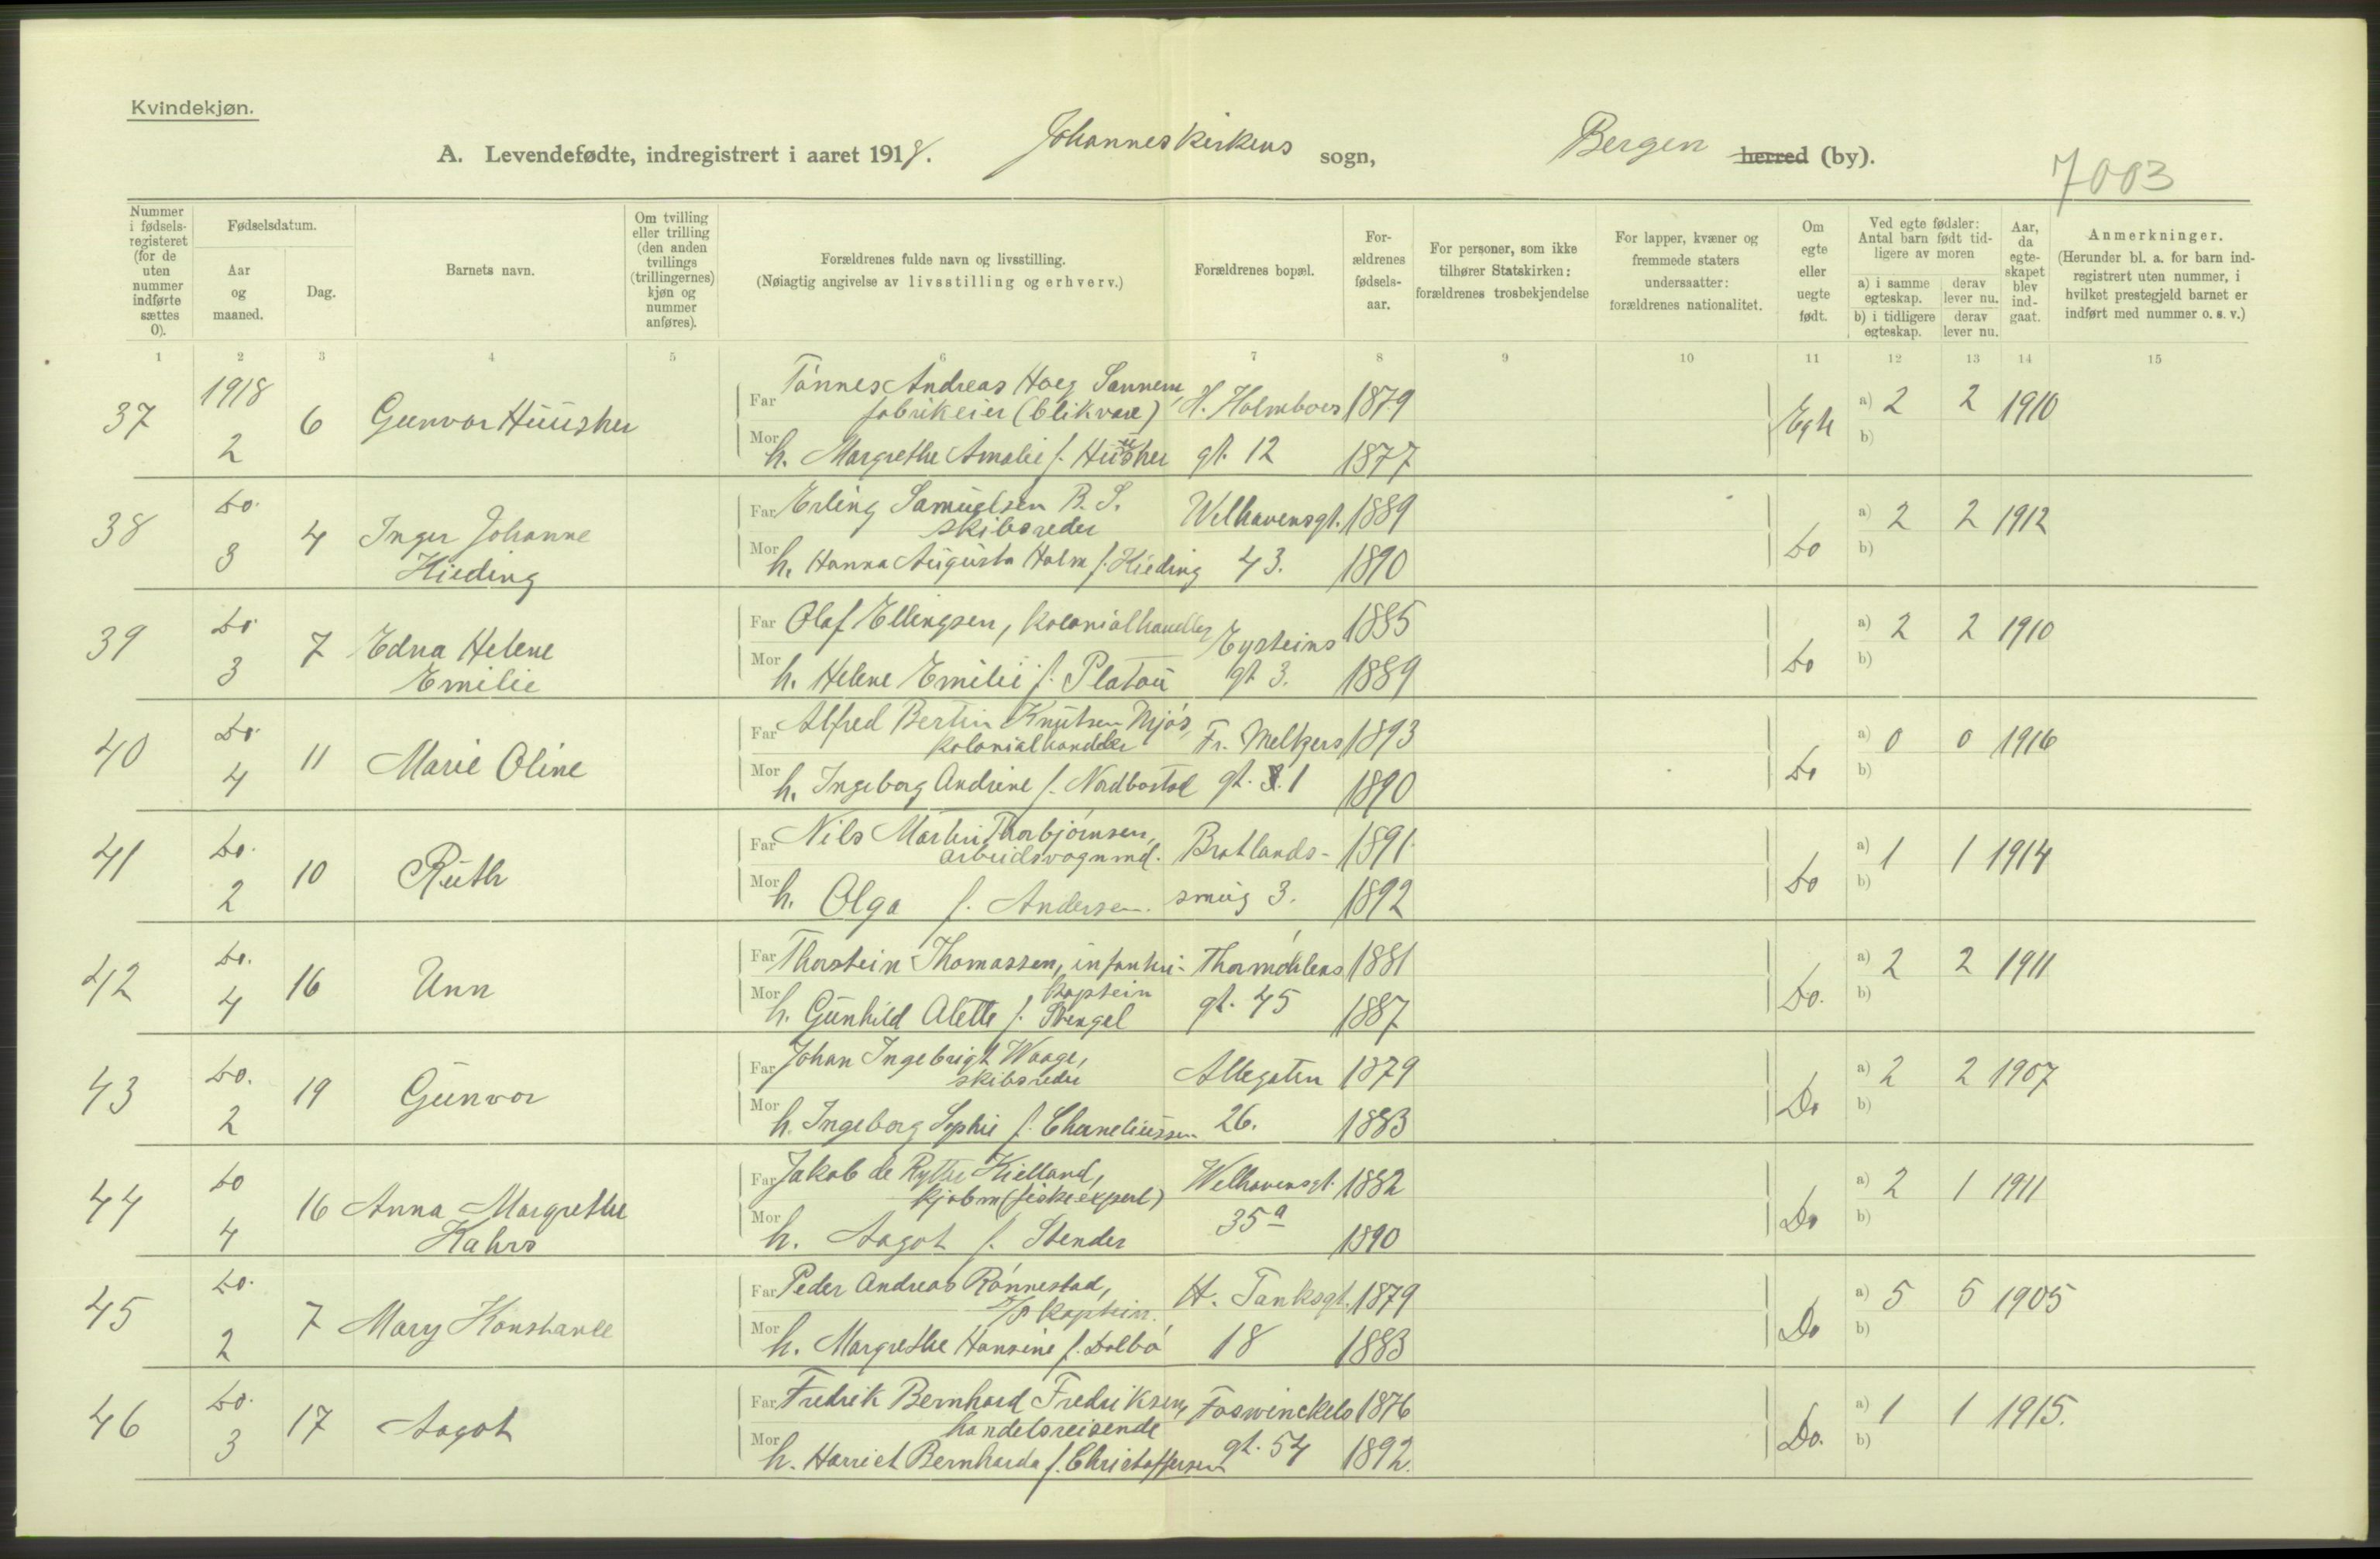 Kvindekjøn.
A. Levendefødte, indregistrert i aaret 1918. Johanneskirkens sogn, Bergen herred (by).
7003
Nummer i fødselsregisteret (for de uten nummer indførte sættes 0).
Fødselsdatum.
Aar og maaned.
Dag.
Barnets navn.
Om tvilling eller trilling (den anden tvillings (trillingernes) kjøn og nummer anføres).
Forældrenes fulde navn og livsstilling.
(Nøiagtig angivelse av livsstilling og erhverv.)
Forældrenes bopæl.
Forældrenes fødselsaar.
For personer, som ikke tilhører Statskirken: forældrenes trosbekjendelse
For lapper, kvæner og fremmede staters undersaatter: forældrenes nationalitet.
Om egte eller uegte født.
Ved egte fødsler: Antal barn født tidligere av moren
a) i samme egteskap. derav lever nu.
b) i tidligere egteskap. derav lever nu.
Aar, da egteskapet blev indgaat.
Anmerkninger.
(Herunder bl. a. for barn indregistrert uten nummer, i hvilket prestegjeld barnet er indført med nummer o. s. v.)
1 2 3 4 5 6 7 8 9 10 11 12 13 14 15
37 1918 2 6 Gunvor Huusher
Far Tönnes Andreas Hoeg Sannem, fabrikeier (blikvare) H. Holmboes 1879
Mor h. Margrethe Amalie f. Huusher gt. 12 1877
Egte a) 2 2 1910
b)
38 Do. 3 4 Inger Johanne Hieding
Far Erling Samuelsen B. S. skibsreder Welhavensgt. 1889
Mor h. Hanna Augusta Holm f. Hieding 43. 1890
Do a) 2 2 1912
b)
39 Do 3 7 Edna Helene Emilie
Far Olaf Ellingsen, kolonialhandler Eysteins 1885
Mor h. Helene Emilie f. Platou gt 3. 1889
Do a) 2 2 1910
b)
40 Do 4 11 Marie Oline
Far Alfred Bertin Knutsen Mjös, kolonialhandler Fr. Meltzers 1893
Mor h. Ingeborg Andrine f. Nordbostad gt. 1 1890
Do a) 0 0 1916
b)
41 Do. 2 10 Ruth
Far Nils Martin Thorbjörnsen, arbeidsvognmd. Bratlands- 1891
Mor h. Olga f. Andersen. smug 3. 1892
Do a) 1 1 1914
b)
42 Do. 4 16 Unn
Far Thorstein Thomassen, infanteri- kaptein Thormöhlens 1881
Mor h. Gunhild Alette f. Stengel gt. 45 1887
Do. a) 2 2 1911
b)
43 Do. 2 19 Gunvor
Far Johan Ingebrigt Waage, skibsreder Allegaten 1879
Mor h. Ingeborg Sophie f. Corneliussen 26. 1883
Do a) 2 2 1907
b)
44 Do 4 16 Anna Margrethe Kahrs
Far Jakob de Rytter Kielland, kjøbm (fiskeexport) Welhavensgt. 1882
Mor h. Aagot f. Stender 35a 1890
Do a) 2 1 1911
b)
45 Do. 2 7 Mary Konstanse
Far Peder Andreas Rönnestad, D/S kaptein. H. Tanksgt. 1879
Mor h. Margrethe Hansine f. Dolbö 18 1883
Do a) 5 5 1905
b)
46 Do. 3 17 Aagot
Far Fredrik Bernhard Fredriksen, handelsreisende Foswinckels 1876
Mor h. Harriet Bernharda f. Christoffersen gt. 54 1892.
Do. a) 1 1 1915.
b)